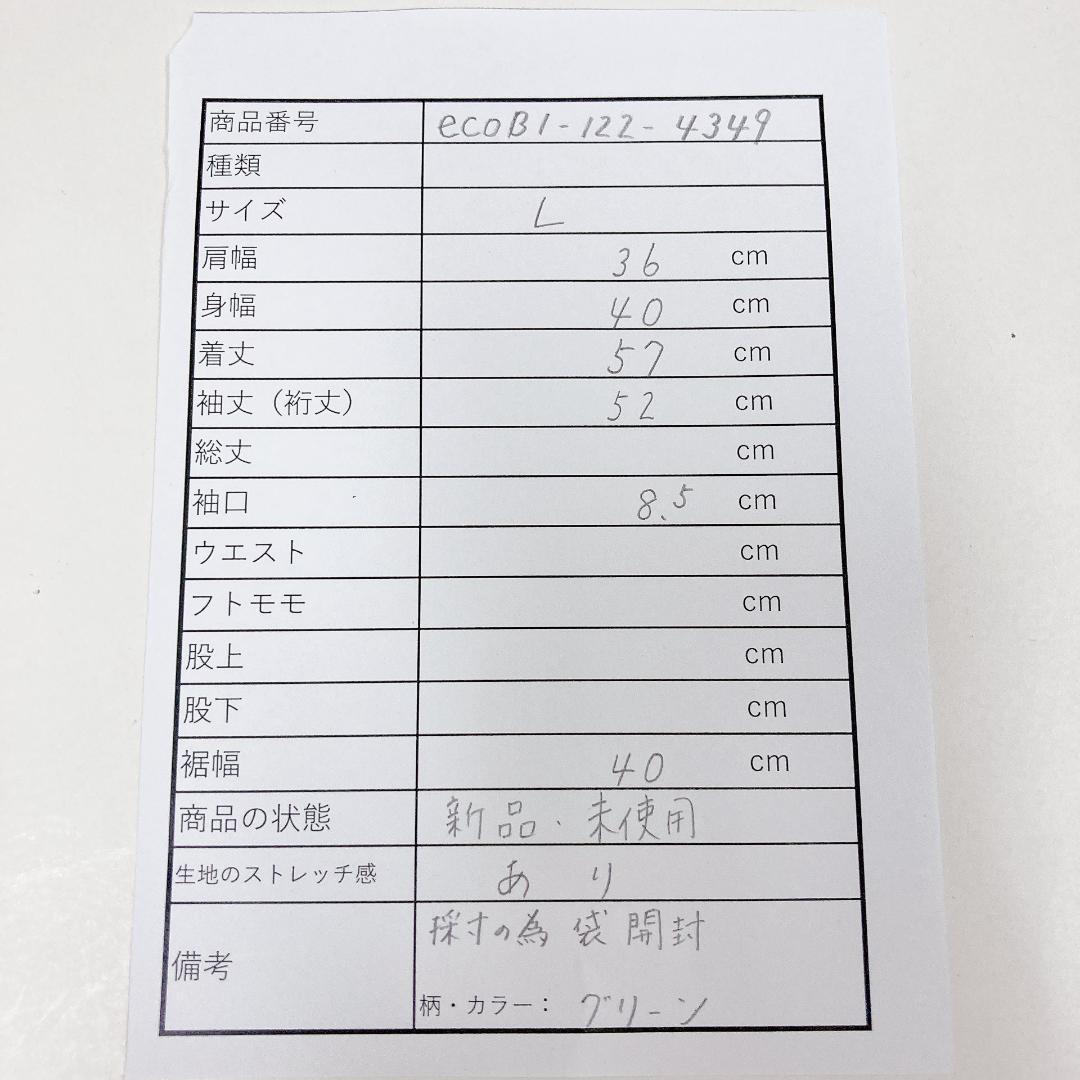 商品番号 ecoB1-122-4349
種類
サイズ L
肩幅 36 cm
身幅 40 cm
着丈 57 cm
袖丈（裄丈） 52 cm
総丈 cm
袖口 8.5 cm
ウエスト cm
フトモモ cm
股上 cm
股下 cm
裾幅 40 cm
商品の状態 新品・未使用
生地のストレッチ感 あり
備考 採寸の為 袋開封
柄・カラー： グリーン